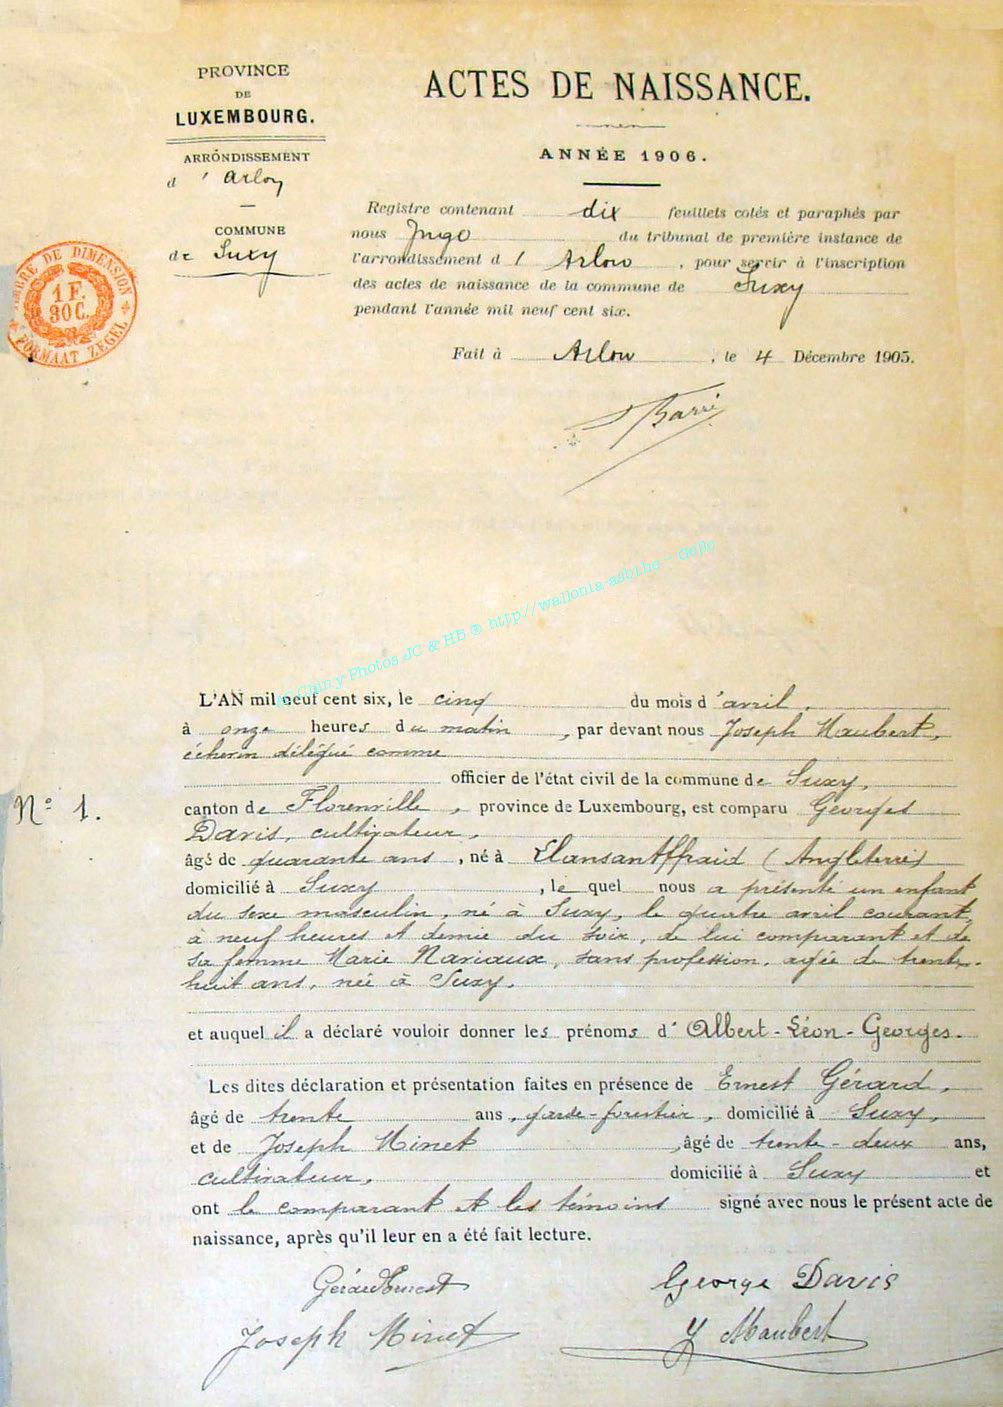 PROVINCE
DE
LUXEMBOURG.
ARRONDISSEMENT
d' Arlon
COMMUNE
de Suxy
TIMBRE DE DIMENSION
1 F.
30 C.
FORMAAT ZEGEL
ACTES DE NAISSANCE.
ANNÉE 1906.
Registre contenant dix feuillets cotés et paraphés par
nous Juge du tribunal de première instance de
l'arrondissement d' Arlon, pour servir à l'inscription
des actes de naissance de la commune de Suxy
pendant l'année mil neuf cent six.
Fait à Arlon, le 4 Décembre 1905.
© Chiny Photos JC & HB ® http://wallonia-asbl.be - Geflo
L'AN mil neuf cent six, le cinq du mois d'avril,
à onze heures du matin, par devant nous Joseph Maubert,
échevin délégué comme
officier de l'état civil de la commune de Suxy,
N° 1.
canton de Florenville, province de Luxembourg, est comparu Georges
Davis, cultivateur,
âgé de quarante ans, né à Llansantffraid (Angleterre)
domicilié à Suxy, le quel nous a présenté un enfant
du sexe masculin, né à Suxy, le quatre avril courant,
à neuf heures et demie du soir, de lui comparant et de
sa femme Marie Mariaux, sans profession, agée de trente-
huit ans, née à Suxy.
et auquel il a déclaré vouloir donner les prénoms d'Albert-Léon-Georges.
Les dites déclaration et présentation faites en présence de Ernest Gérard,
âgé de trente ans, garde-forestier, domicilié à Suxy,
et de Joseph Minet, âgé de trente-deux ans,
cultivateur, domicilié à Suxy et
ont le comparant et les témoins signé avec nous le présent acte de
naissance, après qu'il leur en a été fait lecture.
Gérard Ernest
George Davis
Joseph Minet
J Maubert